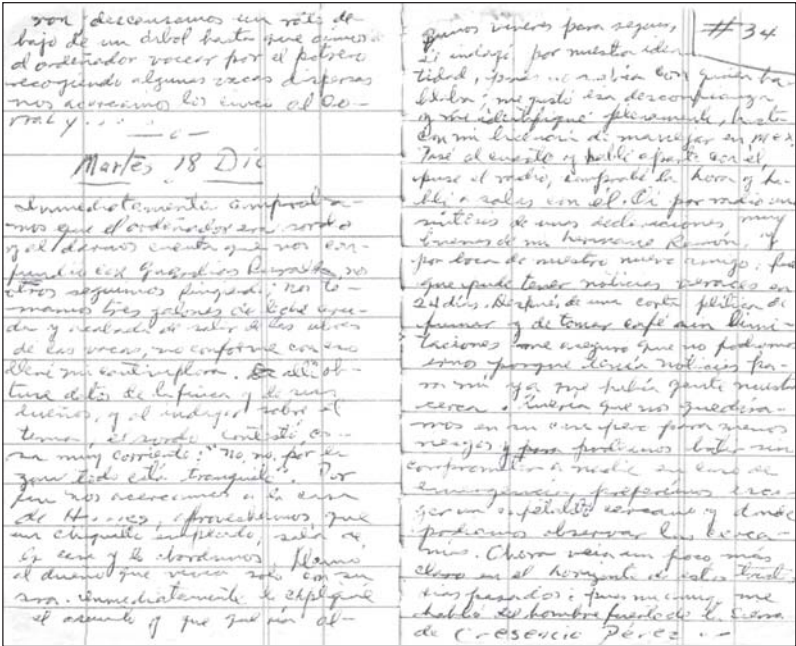 ron descansamos un rato de
bajo de un árbol hasta que oimos
al ordeñador vocear por el potrero
recogiendo algunas vacas dispersas
nos acercamos los cinco al co-
rral y . . . .
Martes 18 Dic
Inmediatamente comproba-
mos que el ordeñador era sordo
y al darnos cuenta que nos con-
fundió con Guardias Rurales, no
sotros seguimos fingiendo: nos to-
mamos tres galones de leche cru-
da y acabada de salir de las ubres
de las vacas, no conforme con eso
llené mi cantimplora. De allí ob-
tuve datos de la finca y de sus
dueños, y al indagar sobre el
tema, el sordo contestó co-
sa muy corriente: "No, no, por la
zona todo está tranquilo". Por
fin nos acercamos a la casa
de aprovechamos que
un chiquillo empleado, salía de
la casa y lo abordamos llamó
al dueño que vivía solo con su
sra. inmediatamente le expliqué
el asunto y que quería al-
# 34
gunos víveres para seguir,
él indagó por nuestra iden
tidad, pues no sabía con quién ha-
blaba, me gustó esa desconfianza
y me identifiqué plenamente, hasta
con mi licencia de manejar en Mex.
José al cuarto y hablé aparte con él,
puse el radio, comprobé la hora y ha-
blé a solas con él. Oí por radio una
síntesis de unas declaraciones, muy
buenas de mi hermano Ramón, y
por boca de nuestro nuevo amigo: fue
que pude tener noticias veraces en
24 días. Después de una corta plática de
fumar y de tomar café sin limi-
taciones me aseguró que no podíamos
irnos porque tenía noticias pa-
ra mí ya que había gente nuestra
cerca. Quería que nos quedára-
mos en su casa pero para menos
riesgos y para podernos batir sin
comprometer a nadie en caso de
emergencia, preferimos esco-
ger un cercano y donde
podíamos observar las cerca-
nías. Ahora veía un poco más
claro en el horizonte de estos
días pasados: pues mi amigo, me
habló del hombre fuerte de la Sierra
de Cresencio Pérez